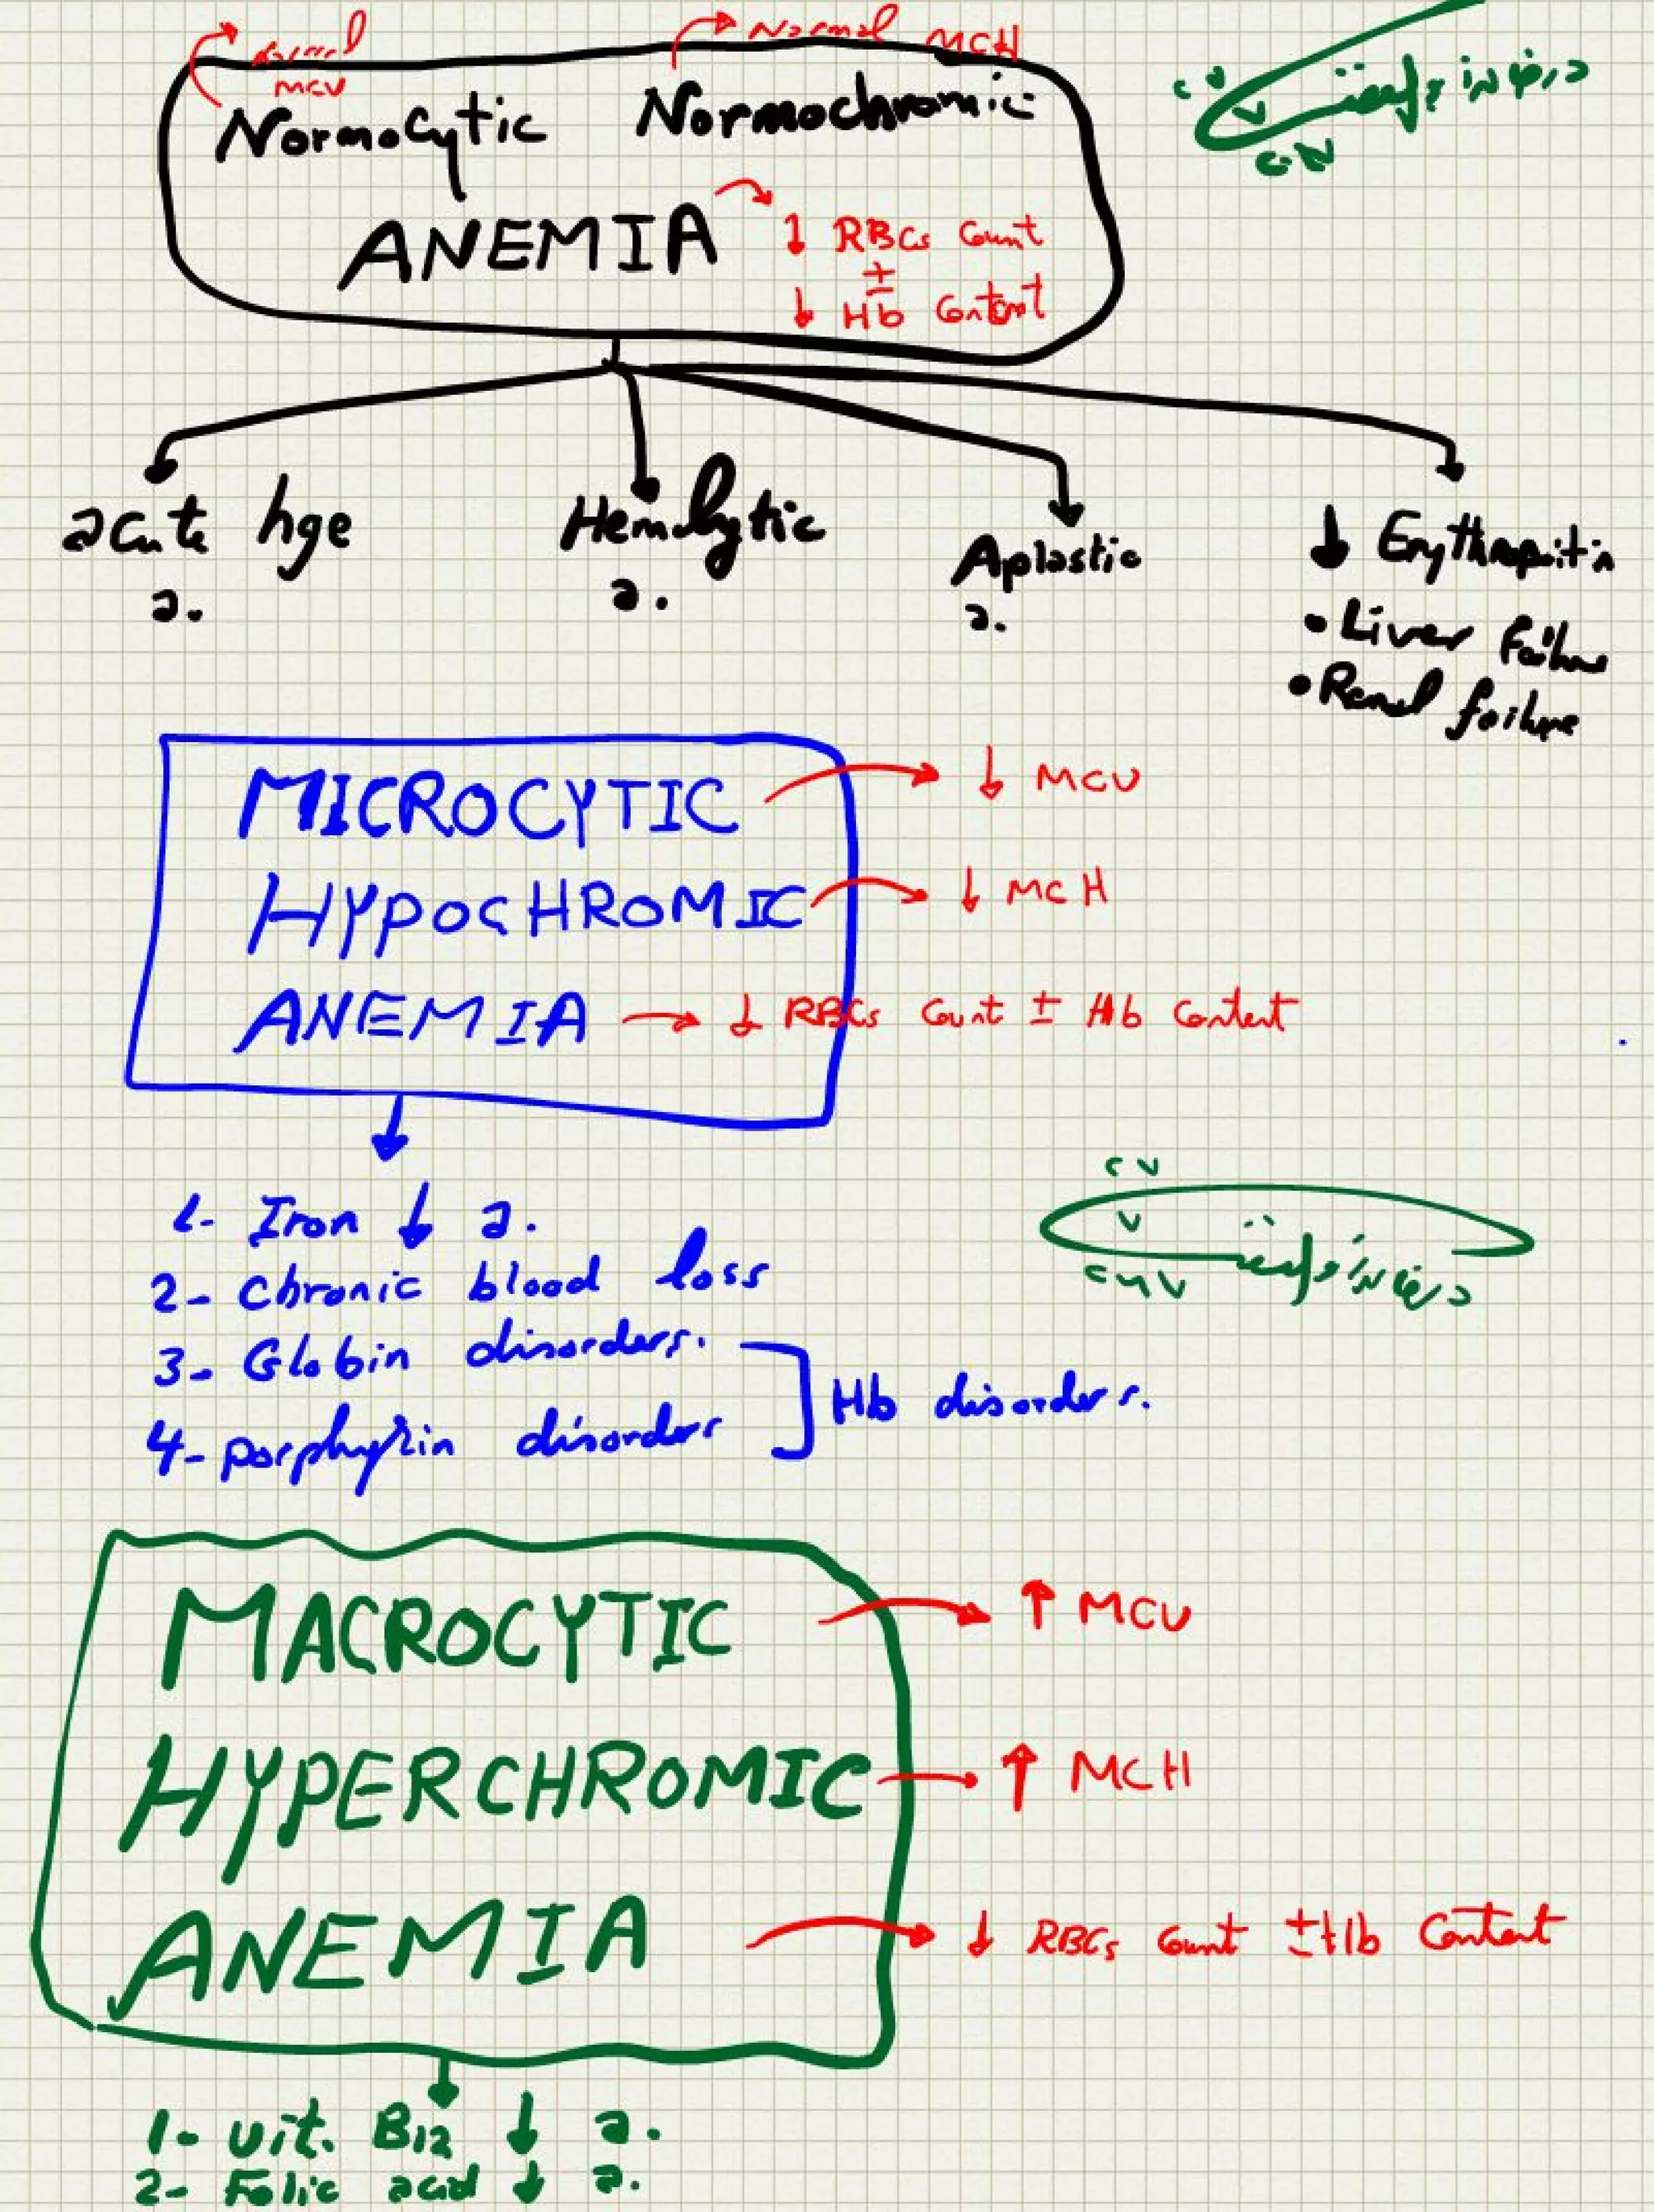 Normal MCV
Normal MCH
Normocytic Normochromic
ANEMIA
↓ RBCs Count
±
↓ Hb Content
acute hge a.
Hemolytic a.
Aplastic a.
↓ Erythropoitin
• Liver failure
• Renal failure
MICROCYTIC → ↓ MCV
HYPOCHROMIC → ↓ MCH
ANEMIA → ↓ RBCs Count ± Hb Content
1- Iron ↓ a.
2- Chronic blood loss
3- Globin disorders.
4- porphyrin disorders
Hb disorders.
MACROCYTIC → ↑ MCV
HYPERCHROMIC → ↑ MCH
ANEMIA → ↓ RBCs Count ± Hb Content
1- vit. B12 ↓ a.
2- Folic acid ↓ a.